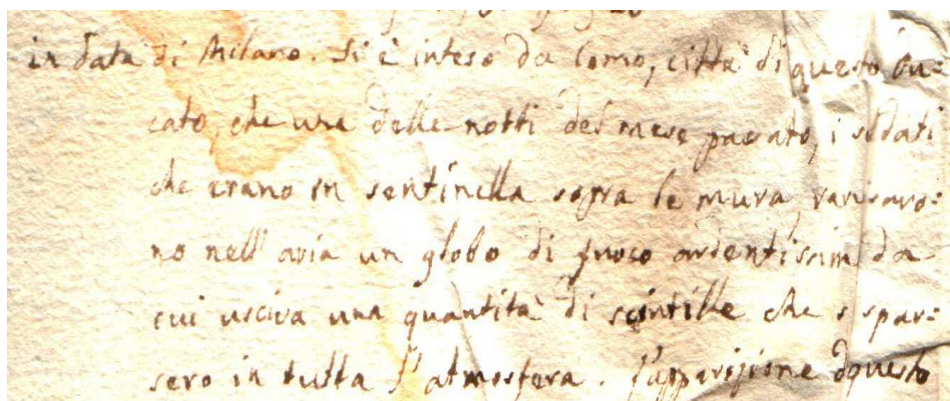 in data di Milano. Si è inteso da Como, città di questo Du=
cato, che una delle notti del mese passato, i soldati
che erano in sentinella sopra le mura,
no nell' aria un globo di fuoco ardentissim da
cui usciva una quantità di scintille che s spar=
sero in tutta l' atmosfera. l'apparizione dquesto